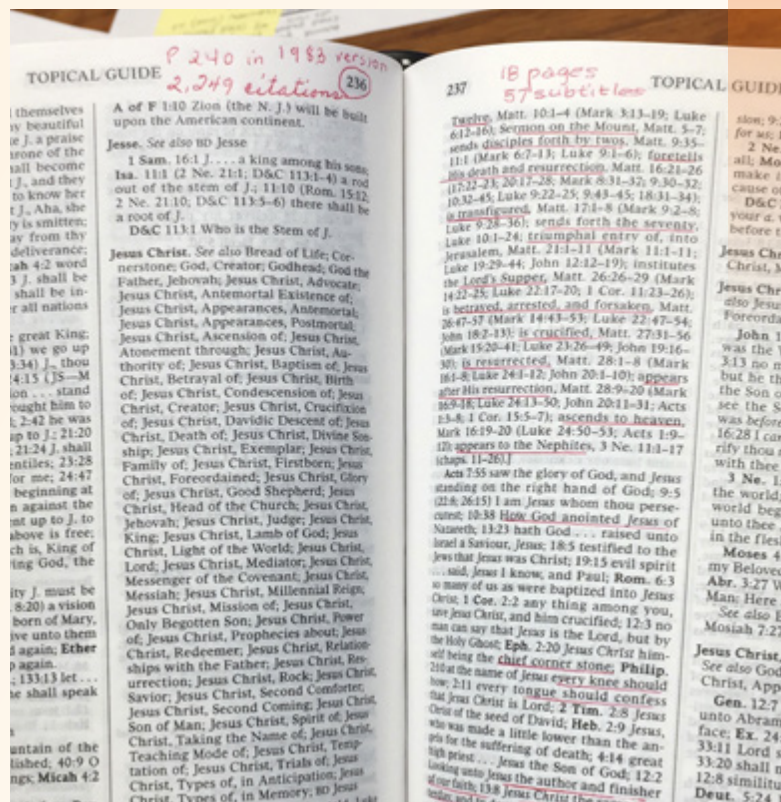 TOPICAL GUIDE
P 240 in 1983 version
2,249 citations
236
themselves
y beautiful
e J. a praise
rone of the
all become
J., and they
to know her
J., Aha, she
y is smitten;
ay from thy
deliverance;
ah 4:2 word
3 J. shall be
shall be in-
r all nations
great King;
we go up
3:34) J., thou
4:15 (JS—M
on . . . stand
ought him to
; 2:42 he was
up to J.; 21:20
21:24 J. shall
entiles; 23:28
or me; 24:47
beginning at
n against the
nt up to J. to
above is free;
ch is, King of
ing God, the
ity J. must be
8:20) a vision
born of Mary,
ve unto them
d again; Ether
p again.
; 133:13 let . . .
e shall speak
untain of the
lished; 40:9 O
ngs; Micah 4:2
A of F 1:10 Zion (the N. J.) will be built
upon the American continent.
Jesse. See also BD Jesse
1 Sam. 16:1 J. . . . a king among his sons;
Isa. 11:1 (2 Ne. 21:1; D&C 113:1–4) a rod
out of the stem of J.; 11:10 (Rom. 15:12;
2 Ne. 21:10; D&C 113:5–6) there shall be
a root of J.
D&C 113:1 Who is the Stem of J.
Jesus Christ. See also Bread of Life; Cor-
nerstone; God, Creator; Godhead; God the
Father, Jehovah; Jesus Christ, Advocate;
Jesus Christ, Antemortal Existence of;
Jesus Christ, Appearances, Antemortal;
Jesus Christ, Appearances, Postmortal;
Jesus Christ, Ascension of; Jesus Christ,
Atonement through; Jesus Christ, Au-
thority of; Jesus Christ, Baptism of; Jesus
Christ, Betrayal of; Jesus Christ, Birth
of; Jesus Christ, Condescension of; Jesus
Christ, Creator; Jesus Christ, Crucifixion
of; Jesus Christ, Davidic Descent of; Jesus
Christ, Death of; Jesus Christ, Divine Son-
ship; Jesus Christ, Exemplar; Jesus Christ,
Family of; Jesus Christ, Firstborn; Jesus
Christ, Foreordained; Jesus Christ, Glory
of; Jesus Christ, Good Shepherd; Jesus
Christ, Head of the Church; Jesus Christ,
Jehovah; Jesus Christ, Judge; Jesus Christ,
King; Jesus Christ, Lamb of God; Jesus
Christ, Light of the World; Jesus Christ,
Lord; Jesus Christ, Mediator; Jesus Christ,
Messenger of the Covenant; Jesus Christ,
Messiah; Jesus Christ, Millennial Reign;
Jesus Christ, Mission of; Jesus Christ,
Only Begotten Son; Jesus Christ, Power
of; Jesus Christ, Prophecies about; Jesus
Christ, Redeemer; Jesus Christ, Relation-
ships with the Father; Jesus Christ, Res-
urrection; Jesus Christ, Rock; Jesus Christ,
Savior; Jesus Christ, Second Comforter;
Jesus Christ, Second Coming; Jesus Christ,
Son of Man; Jesus Christ, Spirit of; Jesus
Christ, Taking the Name of; Jesus Christ,
Teaching Mode of; Jesus Christ, Temp-
tation of; Jesus Christ, Trials of; Jesus
Christ, Types of, in Anticipation; Jesus
Christ, Types of, in Memory; BD Jesus
237
18 pages
57 subtitles
TOPICAL GUIDE
Twelve, Matt. 10:1–4 (Mark 3:13–19; Luke
6:12–16); Sermon on the Mount, Matt. 5–7;
sends disciples forth by twos, Matt. 9:35–
11:1 (Mark 6:7–13; Luke 9:1–6); foretells
His death and resurrection, Matt. 16:21–26
(17:22–23; 20:17–28; Mark 8:31–37; 9:30–32;
10:32–45; Luke 9:22–25; 9:43–45; 18:31–34);
is transfigured, Matt. 17:1–8 (Mark 9:2–8;
Luke 9:28–36); sends forth the seventy,
Luke 10:1–24; triumphal entry of, into
Jerusalem, Matt. 21:1–11 (Mark 11:1–11;
Luke 19:29–44; John 12:12–19); institutes
the Lord's Supper, Matt. 26:26–29 (Mark
14:22–25; Luke 22:17–20; 1 Cor. 11:23–26);
is betrayed, arrested, and forsaken, Matt.
26:47–57 (Mark 14:43–53; Luke 22:47–54;
John 18:2–13); is crucified, Matt. 27:31–56
(Mark 15:20–41; Luke 23:26–49; John 19:16–
30); is resurrected, Matt. 28:1–8 (Mark
16:1–8; Luke 24:1–12; John 20:1–10); appears
after His resurrection, Matt. 28:9–20 (Mark
16:9–18; Luke 24:13–50; John 20:11–31; Acts
1:3–8; 1 Cor. 15:5–7); ascends to heaven,
Mark 16:19–20 (Luke 24:50–53; Acts 1:9–
12); appears to the Nephites, 3 Ne. 11:1–17
(chaps. 11–26).]
Acts 7:55 saw the glory of God, and Jesus
standing on the right hand of God; 9:5
(22:8; 26:15) I am Jesus whom thou perse-
cutest; 10:38 How God anointed Jesus of
Nazareth; 13:23 hath God . . . raised unto
Israel a Saviour, Jesus; 18:5 testified to the
Jews that Jesus was Christ; 19:15 evil spirit
. . . said, Jesus I know, and Paul; Rom. 6:3
so many of us as were baptized into Jesus
Christ; 1 Cor. 2:2 any thing among you,
save Jesus Christ, and him crucified; 12:3 no
man can say that Jesus is the Lord, but by
the Holy Ghost; Eph. 2:20 Jesus Christ him-
self being the chief corner stone; Philip.
2:10 at the name of Jesus every knee should
bow; 2:11 every tongue should confess
that Jesus Christ is Lord; 2 Tim. 2:8 Jesus
Christ of the seed of David; Heb. 2:9 Jesus,
who was made a little lower than the an-
gels for the suffering of death; 4:14 great
high priest . . . Jesus the Son of God; 12:2
Looking unto Jesus the author and finisher
of our faith; 13:8 Jesus Christ the
sion; 9:
for us;
2 Ne.
all; Mo
make i
cause o
D&C
your a
before t
Jesus Chr
Christ,
Jesus Chr
also Jesu
Foreorda
John 1
was the
3:13 no m
but he th
the Son o
see the S
was before
16:28 I can
rify thou
with thee
3 Ne. 1
the world
world beg
unto thee
in the fles
Moses 4
my Beloved
Abr. 3:27 W
Man: Here
See also B
Mosiah 7:27
Jesus Christ,
See also God
Christ, App
Gen. 12:7
unto Abram
face; Ex. 24
33:11 Lord
33:20 shall n
12:8 similitu
Deut. 5:24